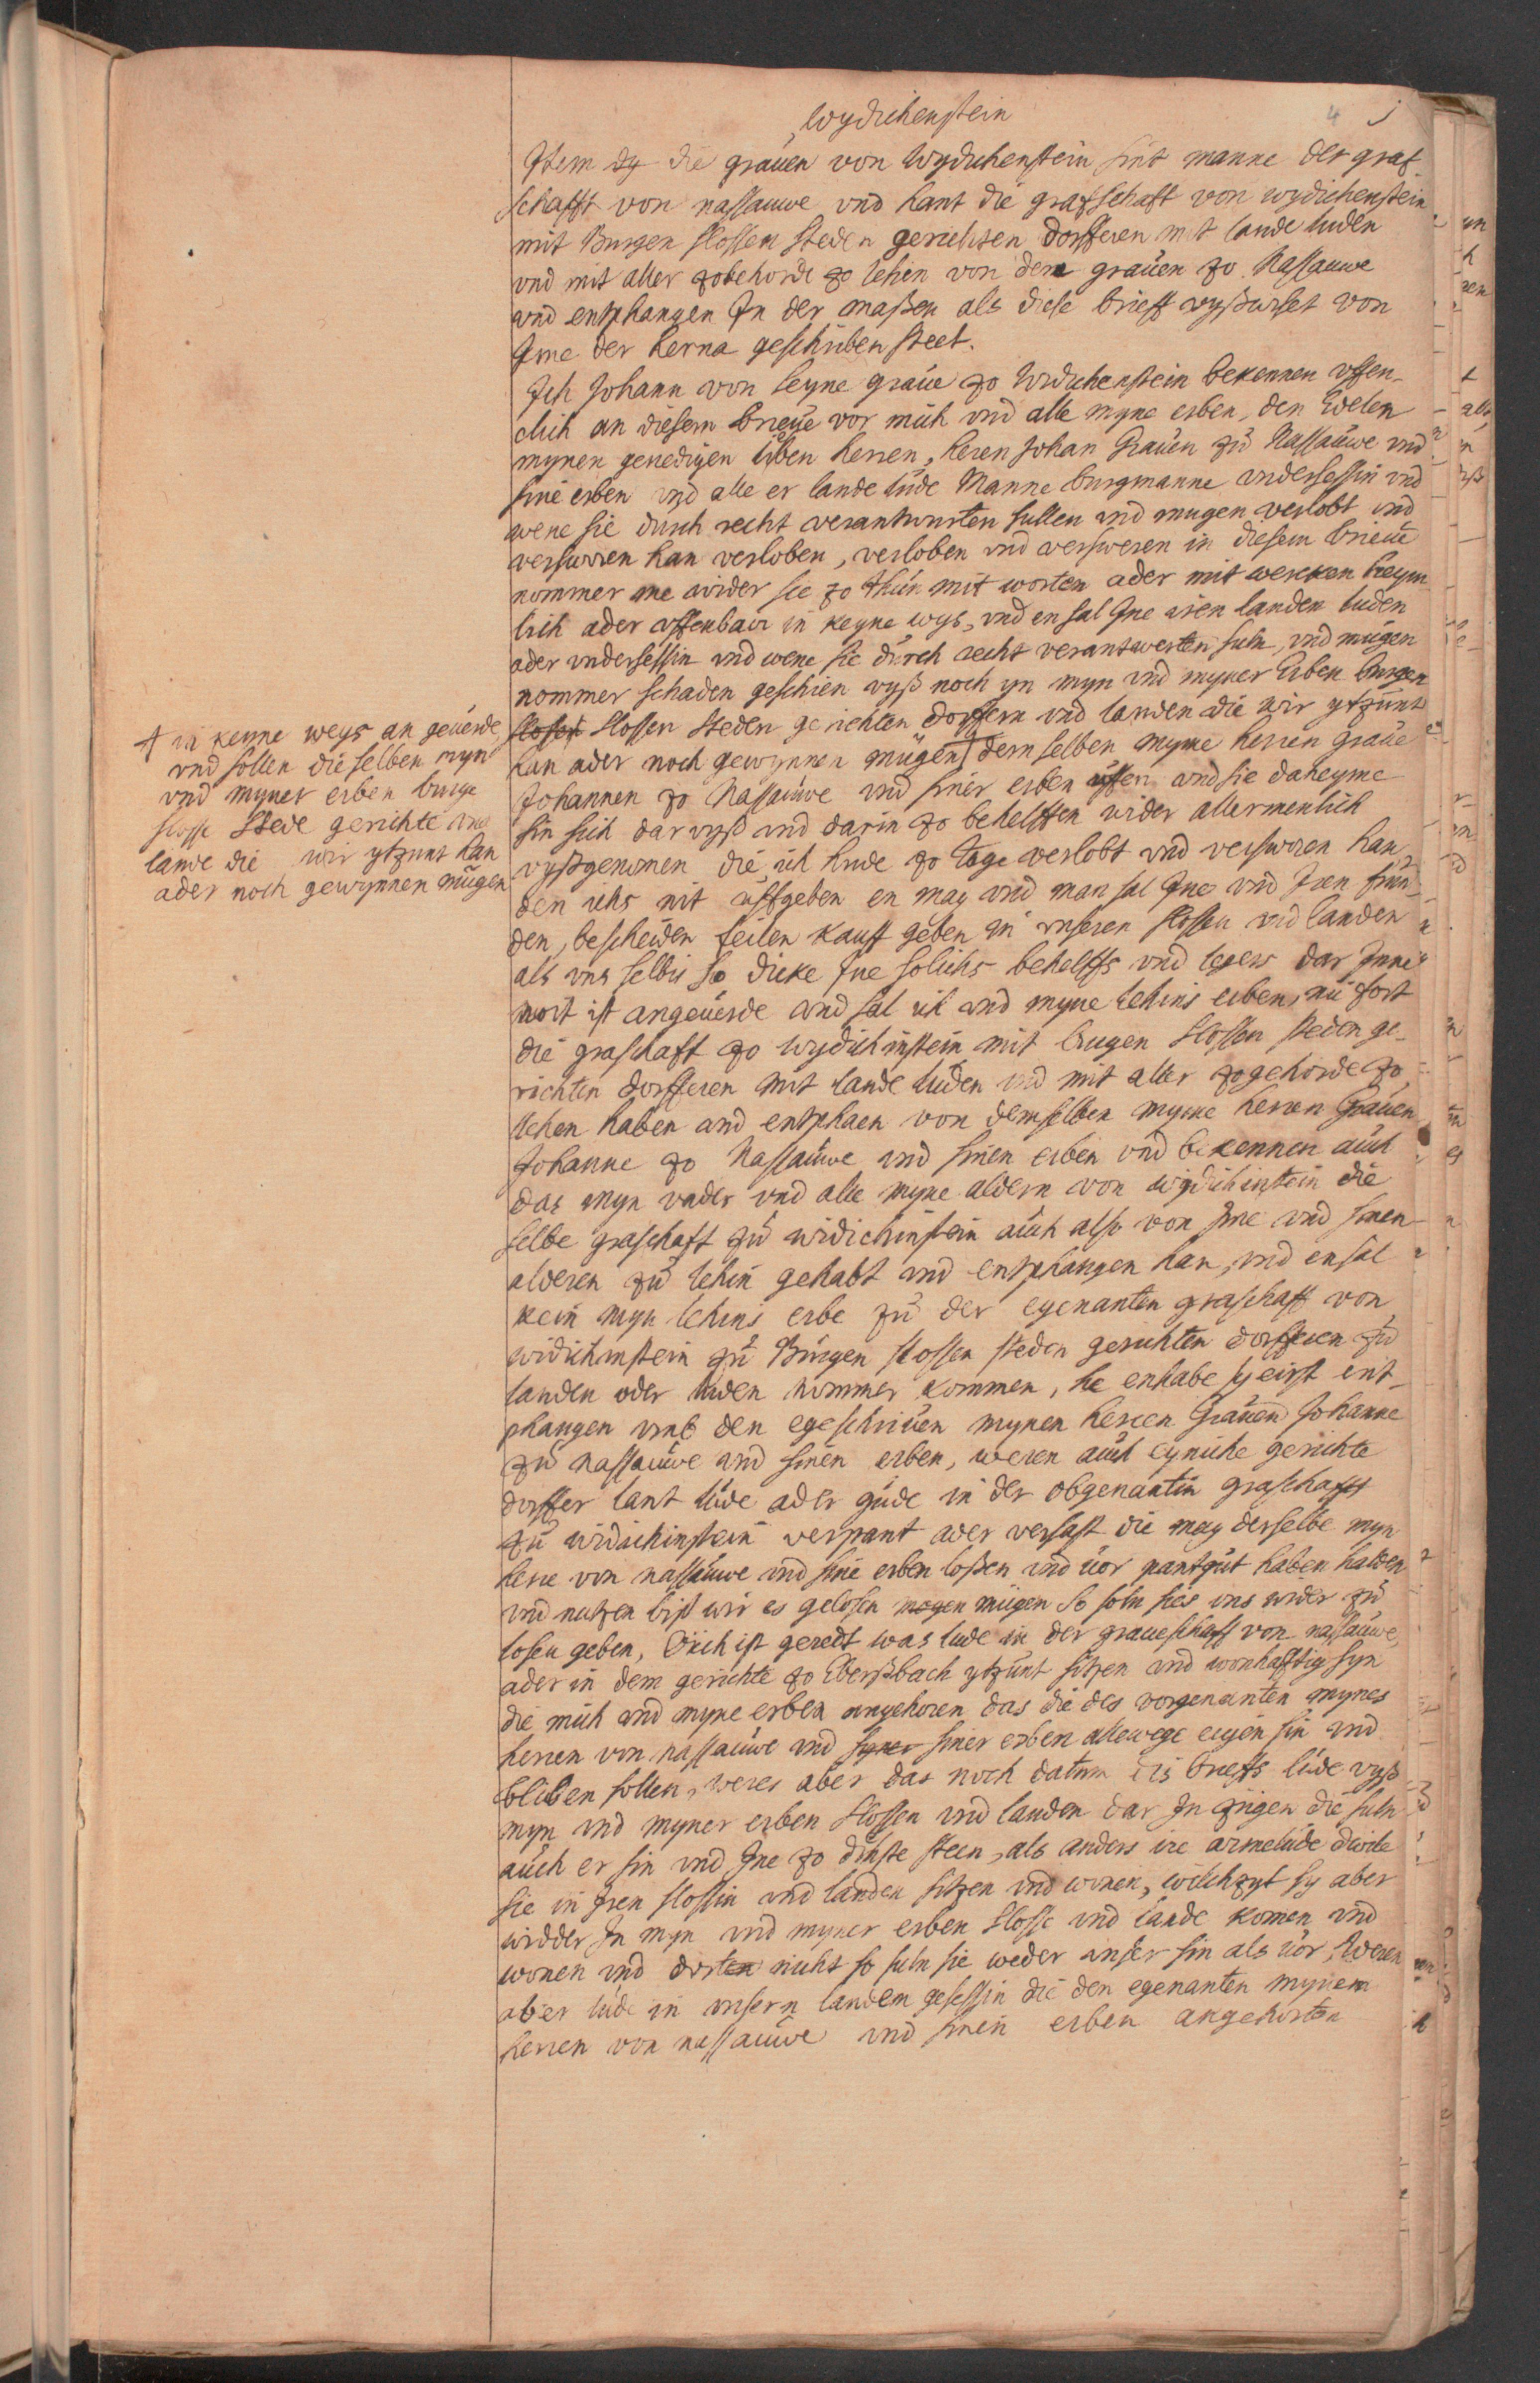 Wydichenstein
4
Item dy die grauen von Wydichenstein sint manne der graf
schafft von nassauwe vnd hant die grafschaft von wydichenstein
mit Burgen slossen steden gerichten dorfferen mit lande luden
vnd mit aller zobehorde zo lehen von dem grauen zo Nassauwe
vnd entphangen In der maßen als diese brieff vyßwiset von
Ime der herna geschriben steet.
Ich Johann von Seyne graue zo Widichenstein bekennen offen-
clich an diesem brieue vor mich vnd alle myne erben, den Edelen
mynen genedigen liben herren, heren Johan Grauen zu Nassauwe vnd
sine erben vnd alle er lande lude Manne burgmanne vndersessin vnd
wene sie durch recht verantwurten sullen vnd mugen verlobt vnd
verswren han verloben, verloben vnd versweren in diesem brieue
nommer me wider sie zo thun mit worten ader mit wercken heym
lich ader offenbair in keyne wys, vnd en sal Ine iren landen luden
ader vndersessin vnd wene sie durch recht verantwerten suln, vnd mugen
nommer schaden geschien vyß noch yn myn vnd myner Erben burgen
slossen slossen steden gerichten dorffern vnd landen die wir ytzunt
han ader noch gewynnen mugen dem selben myme herren graue
Johannen zo Nassauwe vnd siner erben uffen vnd sie daheyme
sin sich dar vyß vnd darin zo behelffen wider allermenlich
vyßgenomen die, ich hude zo tage verlobt vnd versworen han
den ichs nit uffgeben en mag vnd man sal Ine vnd Iren frun
den, bescheiden feilen kauff geben in vnseren slossen vnd landen
als vns selbis so dicke Ine solichs behelffs vnd legers dar Inne
nort ist angeuerde vnd sal ich vnd myne lehins erben, nu fort
die graschaft zo wydichinstein mit burgen slossen steden ge-
richten dorfferen mit lande luden vnd mit aller zogehorde zo
lehen haben vnd entphaen von demselben myme herren Grauen
Johanne zo Nassauwe vnd sinen erben vnd bekennen auch
das myn vader vnd alle myne aldern von wydichinstein die
selbe graschaft zu widichinstein auch also von Ime vnd sinen
alderen zu lehin gehabt vnd entphangen han, vnd ensal
kein myn lehins erbe zu der egenanten graschaft von
widichinstein zu Burgen slossen steden gerichten dorfferen zu
landen oder luden nommer kommen, he enhabe sy eirst ent-
phangen vmb den egeschriuen mynen herren Grauen Johanne
zu nassauwe vnd sinen erben, weren auch eyniche gerichte
dorffer lant lude ader gude in der obgenantin graschafft
zu widichinstein verpant ader versast die mag derselbe myn
herre von nassauwe vnd sine erben loßen vnd vor pantgut haben halden
vnd nutzen biß wir es gelosen mogen mugen so soln sies vns wider zu
losen geben, Ouch ist geredt was lude in der graueschaff von nassauwe,
ader in dem gerichte zo Eberßbach ytzunt sitzen vnd wonhafftig syn
die mich vnd myne erben angehoren das die des vorgenanten mynes
herren von nassauwe vnd syner siner erben allewege eigen sin vnd
bliben sollen, weres aber das noch datum dis brieffs lude vyß
myn vnd myner erben slossen vnd landen dar In zugen die suln
auch er sin vnd Ine zo dinste steen, als anders ire armelude dwile
sie in Iren slossin vnd landen sitzen vnd wonen, wilchzyt sy aber
widder In myn vnd myner erben slosse vnd lande komen vnd
wonen vnd dorten nicht so suln sie weder vnser sin als vor, Weren
aber lude in vnsern landen gesessin die den egenanten mynem
herren von nassauwe vnd sinen erben angehorten
in keyne weys an geuerde
vnd sollen dieselben myn
vnd myner erben burge
slosse stede gerichte vnd
lande die wir ytzunt han
ader noch gewynnen mugen